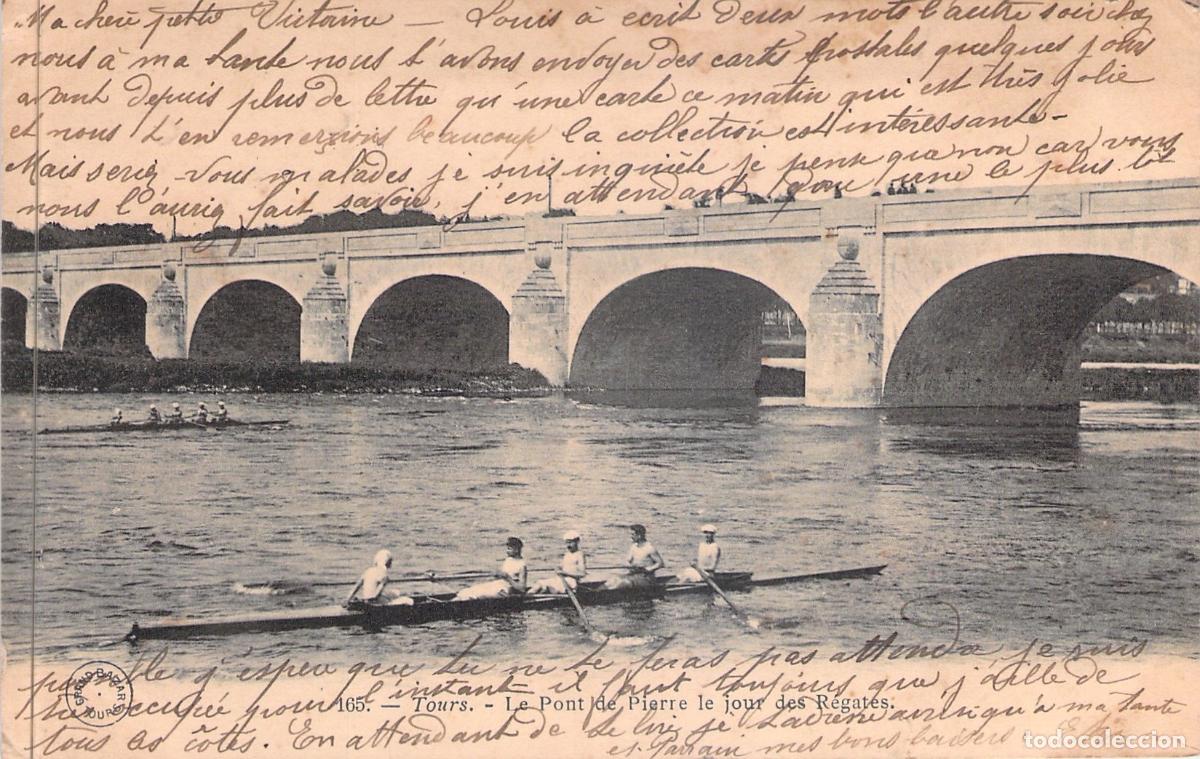 Ma chère petite Victorine — Louis à ecrit deux mots l'autre soir
nous à ma tante nous t'avons envoyer des cartes postales quelques jours
avant depuis plus de lettre qu'une carte ce matin qui est très jolie
et nous t'en remerçions beaucoup la collection est intéressante -
Mais seriez-vous malades je suis inquiète je pense que non car vous
nous l'auriez fait savoir, j'en attendant pour une le plus tôt
j'espère que tu ne te feras pas attendre je suis
occupée pour l'instant il faut toujours que j'aille de
165. — Tours. - Le Pont de Pierre le jour des Régates.
tous les côtés. En attendant de te lire je t'adresse ainsi qu'à ma tante
et Parrain mes bons baisers
GRAND BAZAR TOURS
todocoleccion